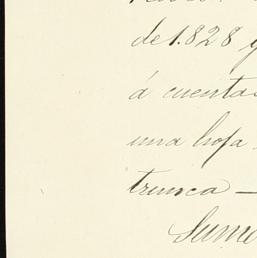 de 1.828 y
á cuenta
una hoja
trunca —